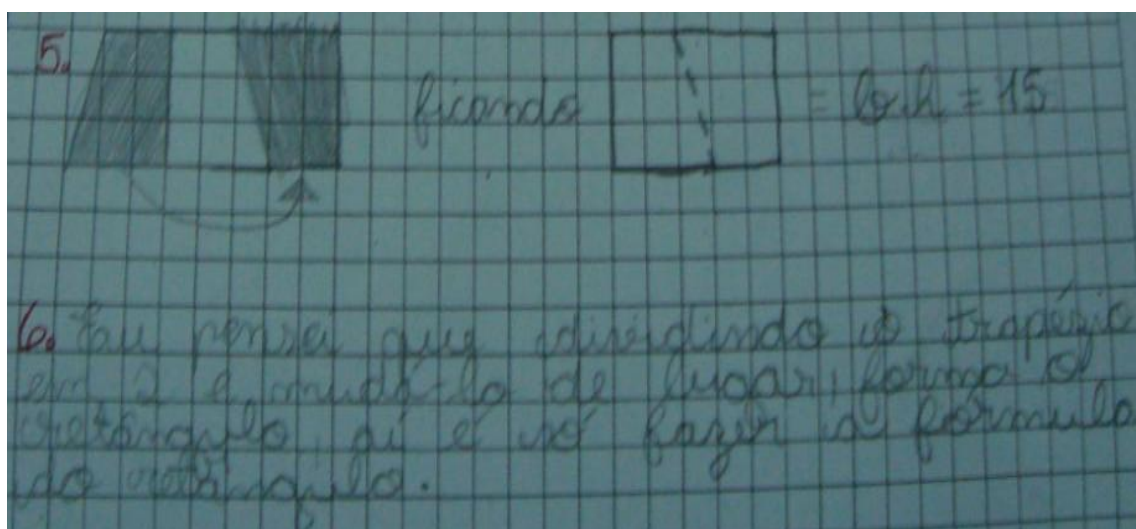 5.
ficando = b.h = 15
6. Eu pensei que dividindo o trapézio
em 2 e mudá-lo de lugar, forma o
retângulo, aí é só fazer a fórmula
do retângulo.